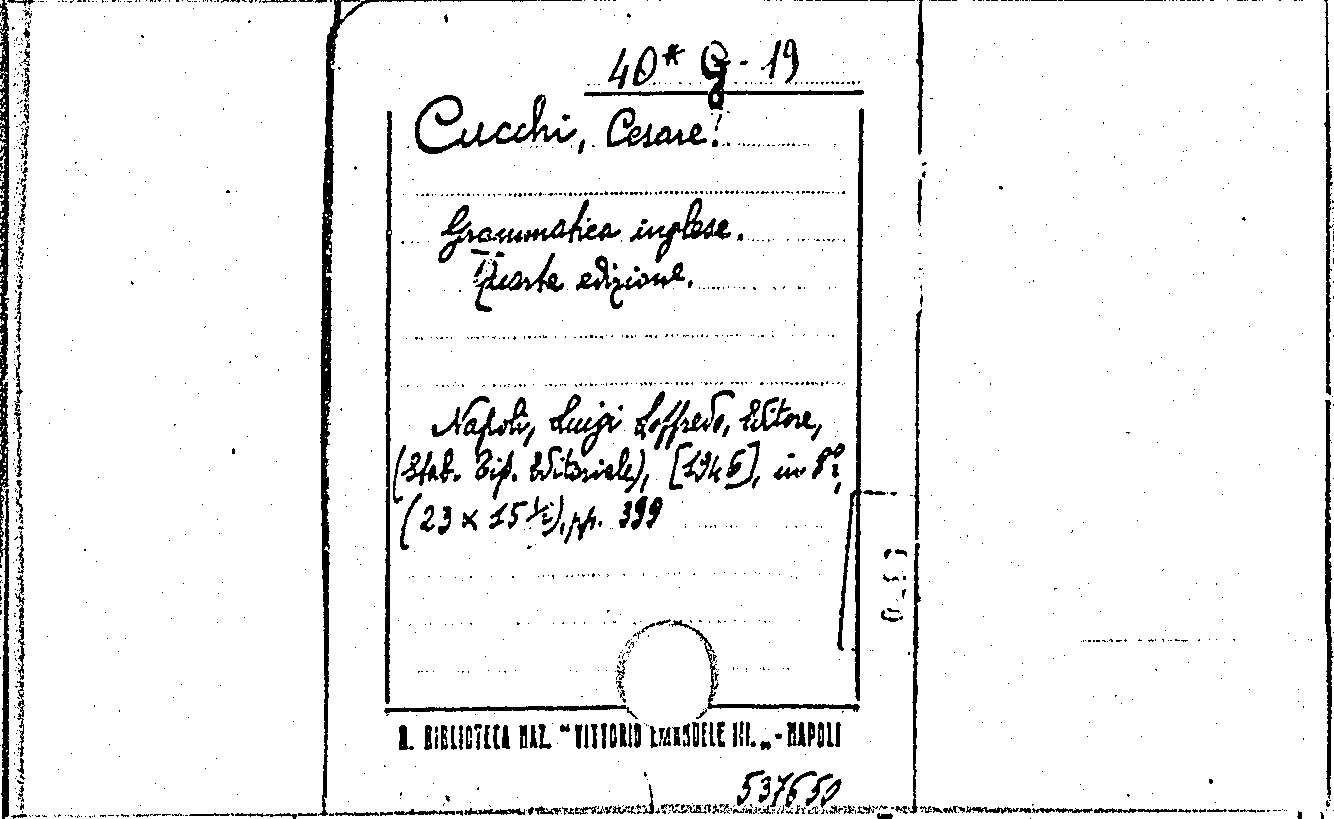 40* G - 19
Cucchi, Cesare.
Grammatica inglese.
Quarta edizione.
Napoli, Luigi Loffredo, Editore,
(Stab. Tip. Editoriale), [1946], in 8º,
(23 x 15 ½), pp. 399
R. BIBLIOTECA NAZ. "VITTORIO EMANUELE III. „ - NAPOLI
537650